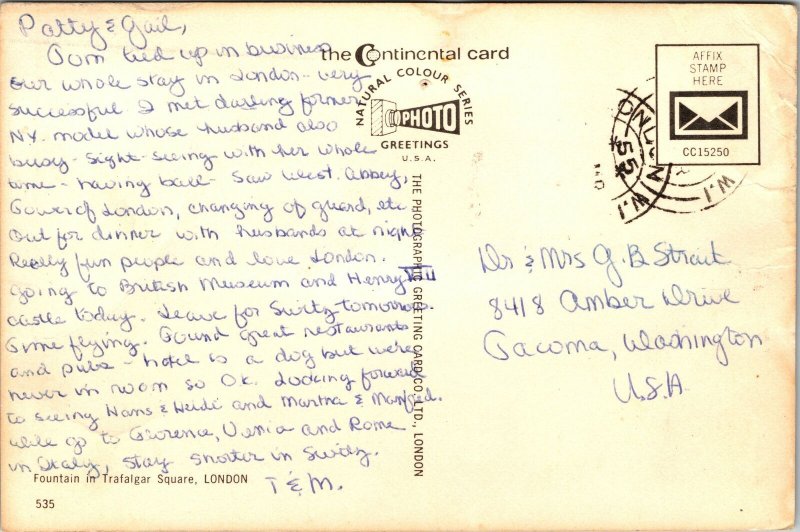 Patty & Gail,
Tom tied up in business
our whole stay in London - very
successful I met darling former
N.Y. model whose husband also
busy - sight-seeing with her whole
time - having ball - Saw West. Abbey,
Tower of London, changing of guard, etc
Out for dinner with husbands at night
Really fun people and love London.
Going to British Museum and Henry VIII
castle today. Leave for Switz tomorrow.
Time flying. Found great restaurants
and pubs - hotel is a dog but we're
never in room so OK. Looking forward
to seeing Hans & Heidi and Martha & Manfred.
We'll go to Florence, Venice and Rome
in Italy, stay shorter in Switz.
T & M.
Fountain in Trafalgar Square, LONDON
535
the Continental card
NATURAL COLOUR SERIES
PHOTO
GREETINGS
U.S.A.
THE PHOTOGRAPHIC GREETING CARD CO. LTD., LONDON
AFFIX
STAMP
HERE
CC15250
LONDON W.1
55
Dr & Mrs G. B. Strait
8418 Amber Drive
Tacoma, Washington
U.S.A